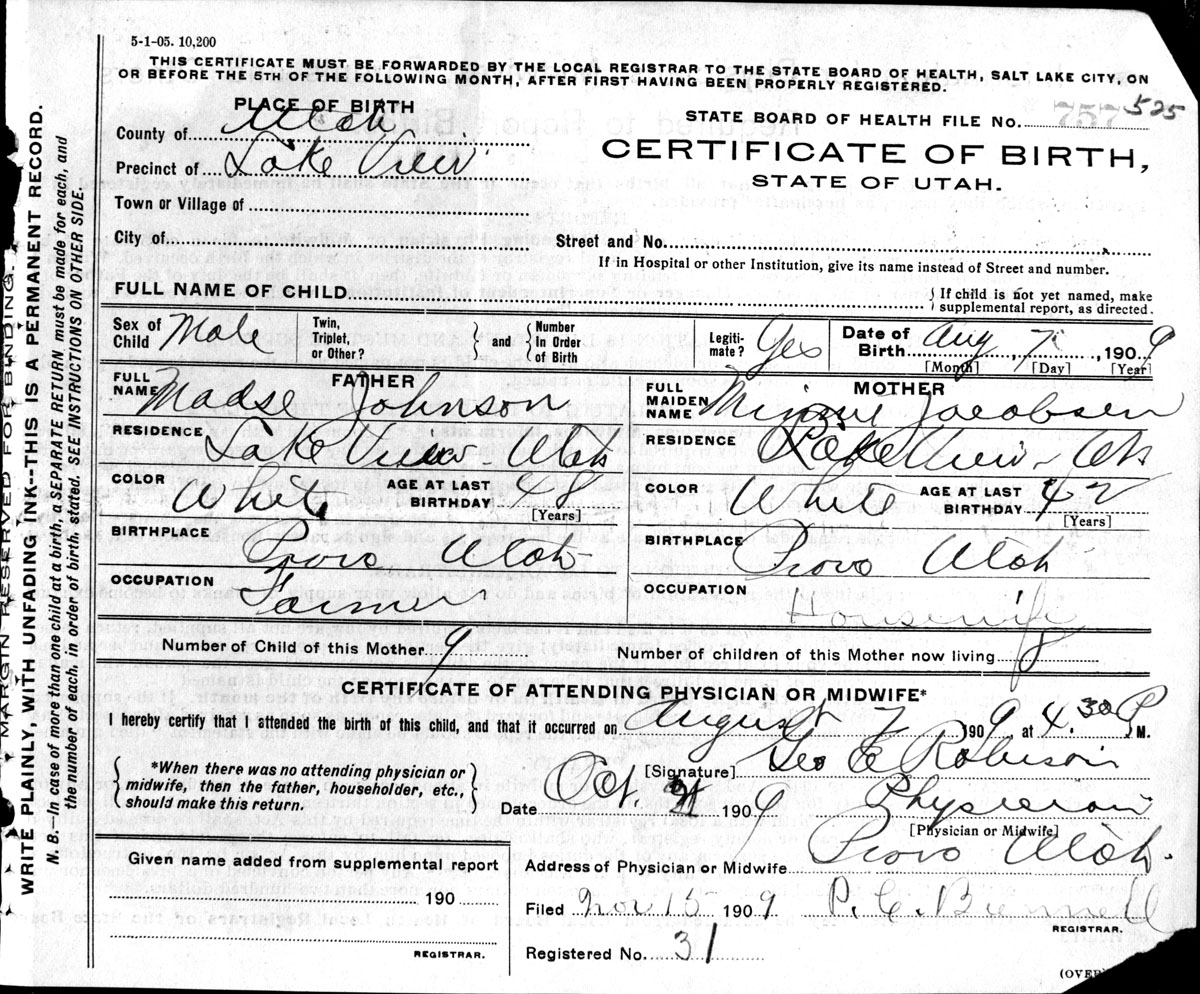 5-1-05. 10,200
THIS CERTIFICATE MUST BE FORWARDED BY THE LOCAL REGISTRAR TO THE STATE BOARD OF HEALTH, SALT LAKE CITY, ON
OR BEFORE THE 5TH OF THE FOLLOWING MONTH, AFTER FIRST HAVING BEEN PROPERLY REGISTERED.
PLACE OF BIRTH
County of Utah
Precinct of Lake View
Town or Village of
City of
STATE BOARD OF HEALTH FILE No. 757 525
CERTIFICATE OF BIRTH,
STATE OF UTAH.
Street and No.
If in Hospital or other Institution, give its name instead of Street and number.
FULL NAME OF CHILD
If child is not yet named, make
supplemental report, as directed.
Sex of Child Male
Twin, Triplet, or Other?
and
Number In Order of Birth
Legiti-mate? Yes
Date of Birth Aug, 7, 1909
[Month] [Day] [Year]
FATHER
FULL NAME Madse Johnson
RESIDENCE Lake View - Utah
COLOR White
AGE AT LAST BIRTHDAY 48
[Years]
BIRTHPLACE Provo Utah
OCCUPATION Farmer
MOTHER
FULL MAIDEN NAME Minnie Jacobsen
RESIDENCE Lake View - Utah
COLOR White
AGE AT LAST BIRTHDAY 42
[Years]
BIRTHPLACE Provo Utah
OCCUPATION Housewife
Number of Child of this Mother 9
Number of children of this Mother now living 8
CERTIFICATE OF ATTENDING PHYSICIAN OR MIDWIFE*
I hereby certify that I attended the birth of this child, and that it occurred on August 7 1909 at 4.30 P M.
*When there was no attending physician or
midwife, then the father, householder, etc.,
should make this return.
[Signature] Geo E Robinson
Date Oct. 1909
Physician
[Physician or Midwife]
Given name added from supplemental report
190
REGISTRAR.
Address of Physician or Midwife Provo Utah.
Filed Nov 15 1909
REGISTRAR.
Registered No. 31
(OVER)
MARGIN RESERVED FOR BINDING.
WRITE PLAINLY, WITH UNFADING INK--THIS IS A PERMANENT RECORD.
N. B. In case of more than one child at a birth, a SEPARATE RETURN must be made for each, and
the number of each, in order of birth, stated. SEE INSTRUCTIONS ON OTHER SIDE.